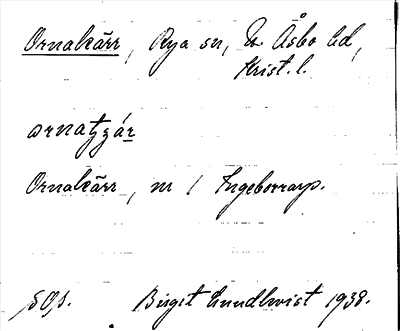 Ornakärr, Rya sn, N. Åsbo hd,
Krist. l.
Ornakärr, m / Ingeborrarp.
SOps. Birgit Lundkvist 1938.